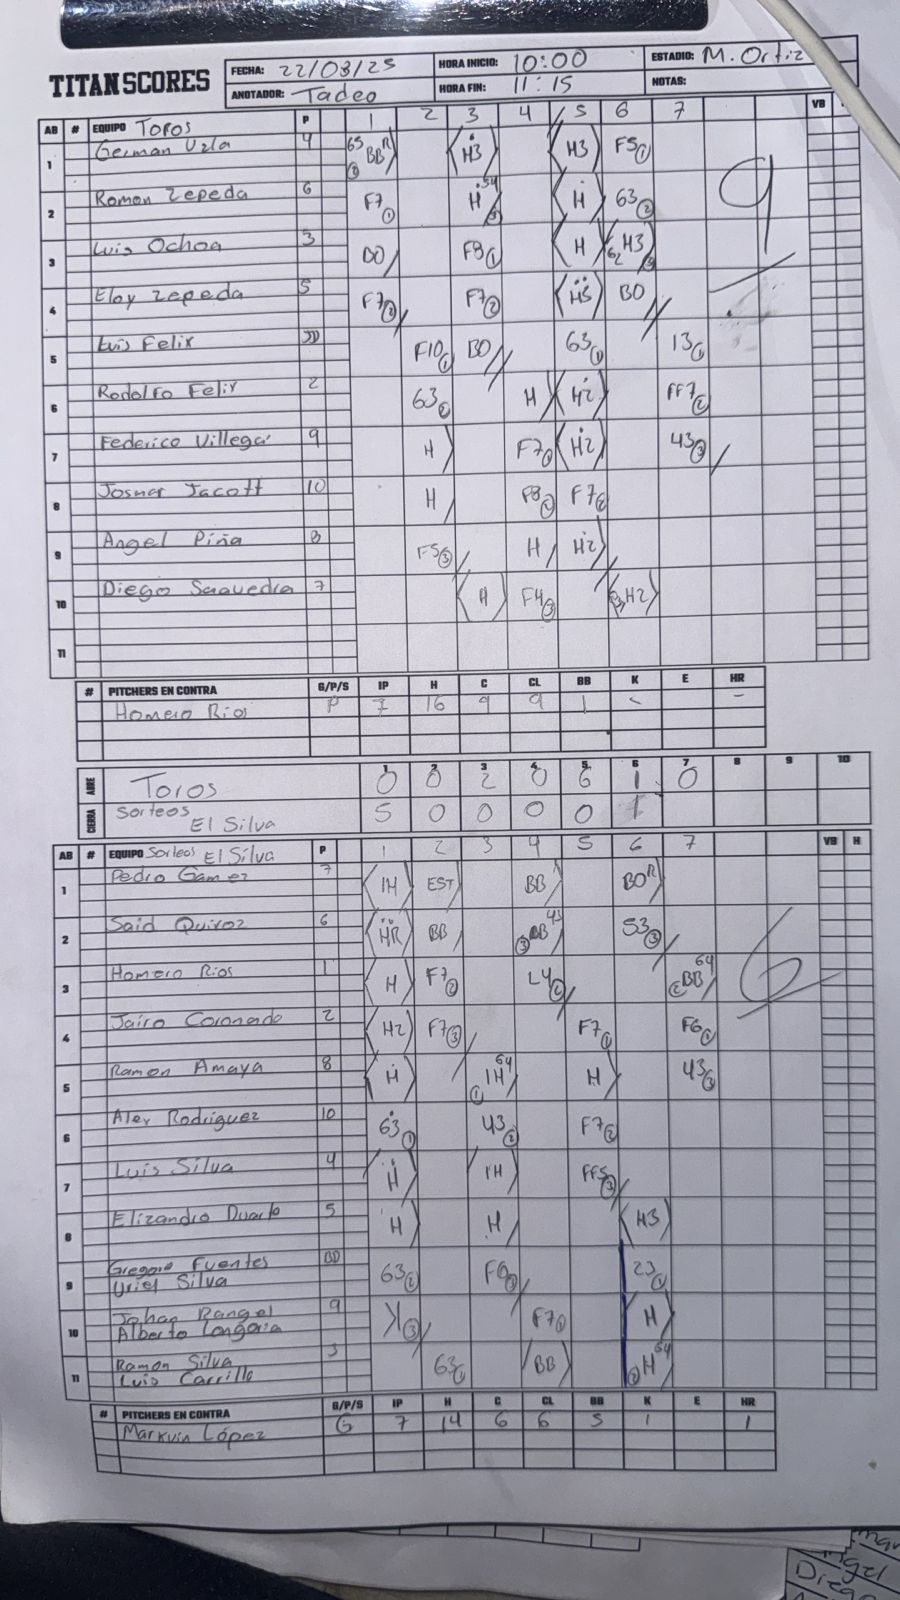 TITANSCORES
FECHA: 22/03/25 HORA INICIO: 10:00 ESTADIO: M. Ortiz
ANOTADOR: Tadeo HORA FIN: 11:15 NOTAS:
AB # EQUIPO Toros P 1 2 3 4 5 6 7 VB
1 German Uzla 4 65 BB R 3 H3 H3 F5 1
2 Roman Zepeda 6 F7 1 H 54 3 H 63 2
3 Luis Ochoa 3 BO F8 1 H 62 H3 3
4 Eloy Zepeda 5 F7 2 F7 2 H5 BO
5 Luis Felix F10 1 BO 63 1 13 1
6 Rodolfo Felix 2 63 2 H H2 FF7 2
7 Federico Villega 9 H F7 1 H2 43 3
8 Josmar Jacott 10 H F8 2 F7 2
9 Angel Piña 8 F5 3 H H2
10 Diego Saavedra 7 H F4 3 H2
11
9
# PITCHERS EN CONTRA G/P/S IP H C CL BB K E HR
Homero Rios P 7 16 9 9 1 - -
1 2 3 4 5 6 7 8 9 10
ABRE Toros 0 0 2 0 6 1 0
CIERRA Sorteos El Silva 5 0 0 0 0 1
AB # EQUIPO Sorteos El Silva P 1 2 3 4 5 6 7 VB H
1 Pedro Gamez 7 IH EST BB BO R
2 Said Quiroz 6 HR BB 3 BB 43 53 3
3 Homero Rios 1 H F7 2 L4 2 2 BB 64
4 Jairo Coronado 2 H2 F7 3 F7 1 F6 1
5 Ramon Amaya 8 H 1 IH 64 H 43 3
6 Alex Rodriguez 10 63 1 43 2 F7 2
7 Luis Silva 4 H IH FF5 3
8 Elizandro Duarte 5 H H H3
9 Gregorio Fuentes BD 63 2 F6 3 23 1
Uriel Silva
10 Johan Rangel 9 K 3 F7 1 H
Alberto Longoria
11 Ramon Silva 3 63 1 BB 2 H 64
Luis Carrillo
6
# PITCHERS EN CONTRA G/P/S IP H C CL BB K E HR
Markvin López G 7 14 6 6 5 1 1
Diego